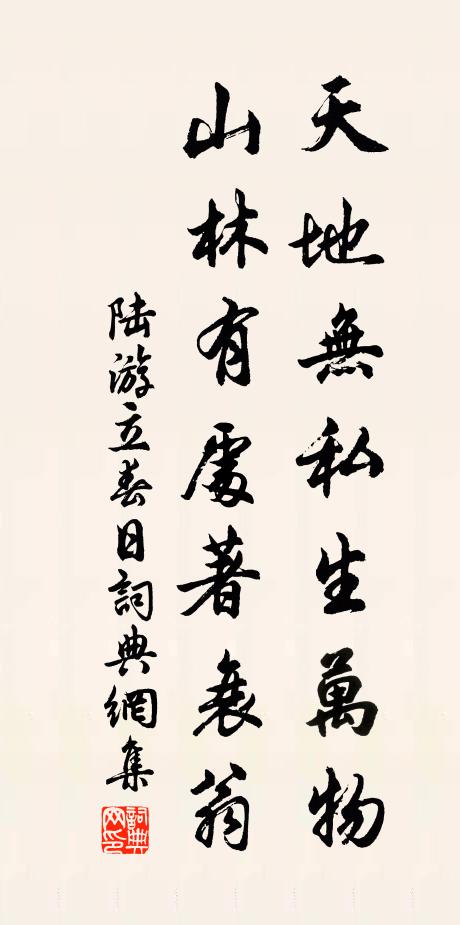 天地無私生萬物
山林有處著衰翁
陸游立春日詞典網集
詞典網印